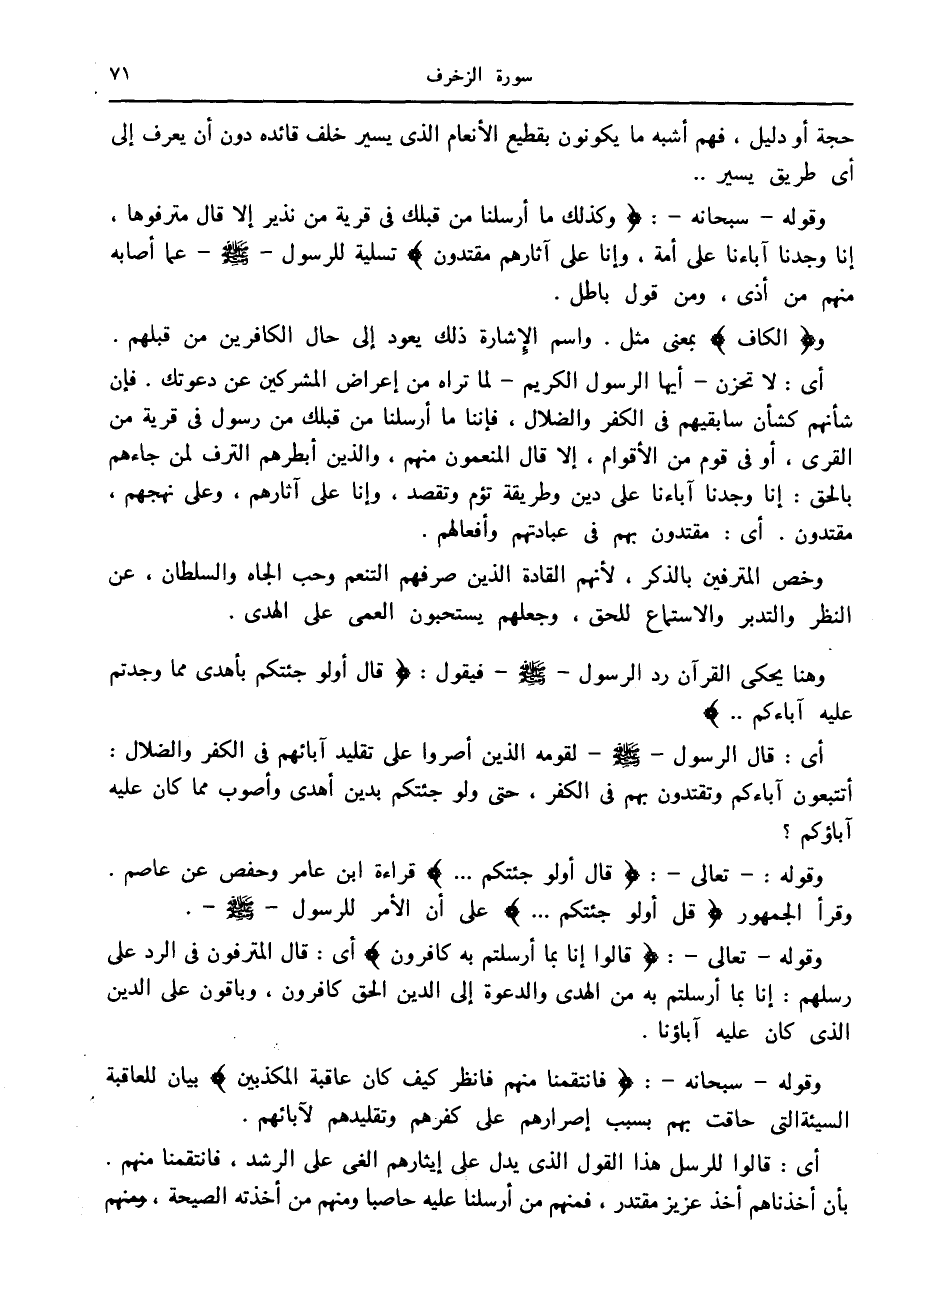 سورة الزخرف ٧١
حجة أو دليل ، فهم أشبه ما يكونون بقطيع الأنعام الذى يسير خلف قائده دون أن يعرف إلى
أى طريق يسير ..
وقوله – سبحانه – : ﴿ وكذلك ما أرسلنا من قبلك فى قرية من نذير إلا قال مترفوها ،
إنا وجدنا آباءنا على أمة ، وإنا على آثارهم مقتدون ﴾ تسلية للرسول – ﷺ – عما أصابه
منهم من أذى ، ومن قول باطل .
و﴿ الكاف ﴾ بمعنى مثل . واسم الإشارة ذلك يعود إلى حال الكافرين من قبلهم .
أى : لا تحزن – أيها الرسول الكريم – لما تراه من إعراض المشركين عن دعوتك . فإن
شأنهم كشأن سابقيهم فى الكفر والضلال ، فإننا ما أرسلنا من قبلك من رسول فى قرية من
القرى ، أو فى قوم من الأقوام ، إلا قال المنعمون منهم ، والذين أبطرهم الترف لمن جاءهم
بالحق : إنا وجدنا آباءنا على دين وطريقة تؤم وتقصد ، وإنا على آثارهم ، وعلى نهجهم ،
مقتدون . أى : مقتدون بهم فى عبادتهم وأفعالهم .
وخص المترفين بالذكر ، لأنهم القادة الذين صرفهم التنعم وحب الجاه والسلطان ، عن
النظر والتدبر والاستماع للحق ، وجعلهم يستحبون العمى على الهدى .
وهنا يحكى القرآن رد الرسول – ﷺ – فيقول : ﴿ قال أولو جئتكم بأهدى مما وجدتم
عليه آباءكم .. ﴾
أى : قال الرسول – ﷺ – لقومه الذين أصروا على تقليد آبائهم فى الكفر والضلال :
أتتبعون آباءكم وتقتدون بهم فى الكفر ، حتى ولو جئتكم بدين أهدى وأصوب مما كان عليه
آباؤكم ؟
وقوله : – تعالى – : ﴿ قال أولو جئتكم ... ﴾ قراءة ابن عامر وحفص عن عاصم .
وقرأ الجمهور ﴿ قل أولو جئتكم ... ﴾ على أن الأمر للرسول – ﷺ – .
وقوله – تعالى – : ﴿ قالوا إنا بما أرسلتم به كافرون ﴾ أى : قال المترفون فى الرد على
رسلهم : إنا بما أرسلتم به من الهدى والدعوة إلى الدين الحق كافرون ، وباقون على الدين
الذى كان عليه آباؤنا .
وقوله – سبحانه – : ﴿ فانتقمنا منهم فانظر كيف كان عاقبة المكذبين ﴾ بيان للعاقبة
السيئةالتى حاقت بهم بسبب إصرارهم على كفرهم وتقليدهم لآبائهم .
أى : قالوا للرسل هذا القول الذى يدل على إيثارهم الغى على الرشد ، فانتقمنا منهم .
بأن أخذناهم أخذ عزيز مقتدر ، فمنهم من أرسلنا عليه حاصبا ومنهم من أخذته الصيحة ، ومنهم